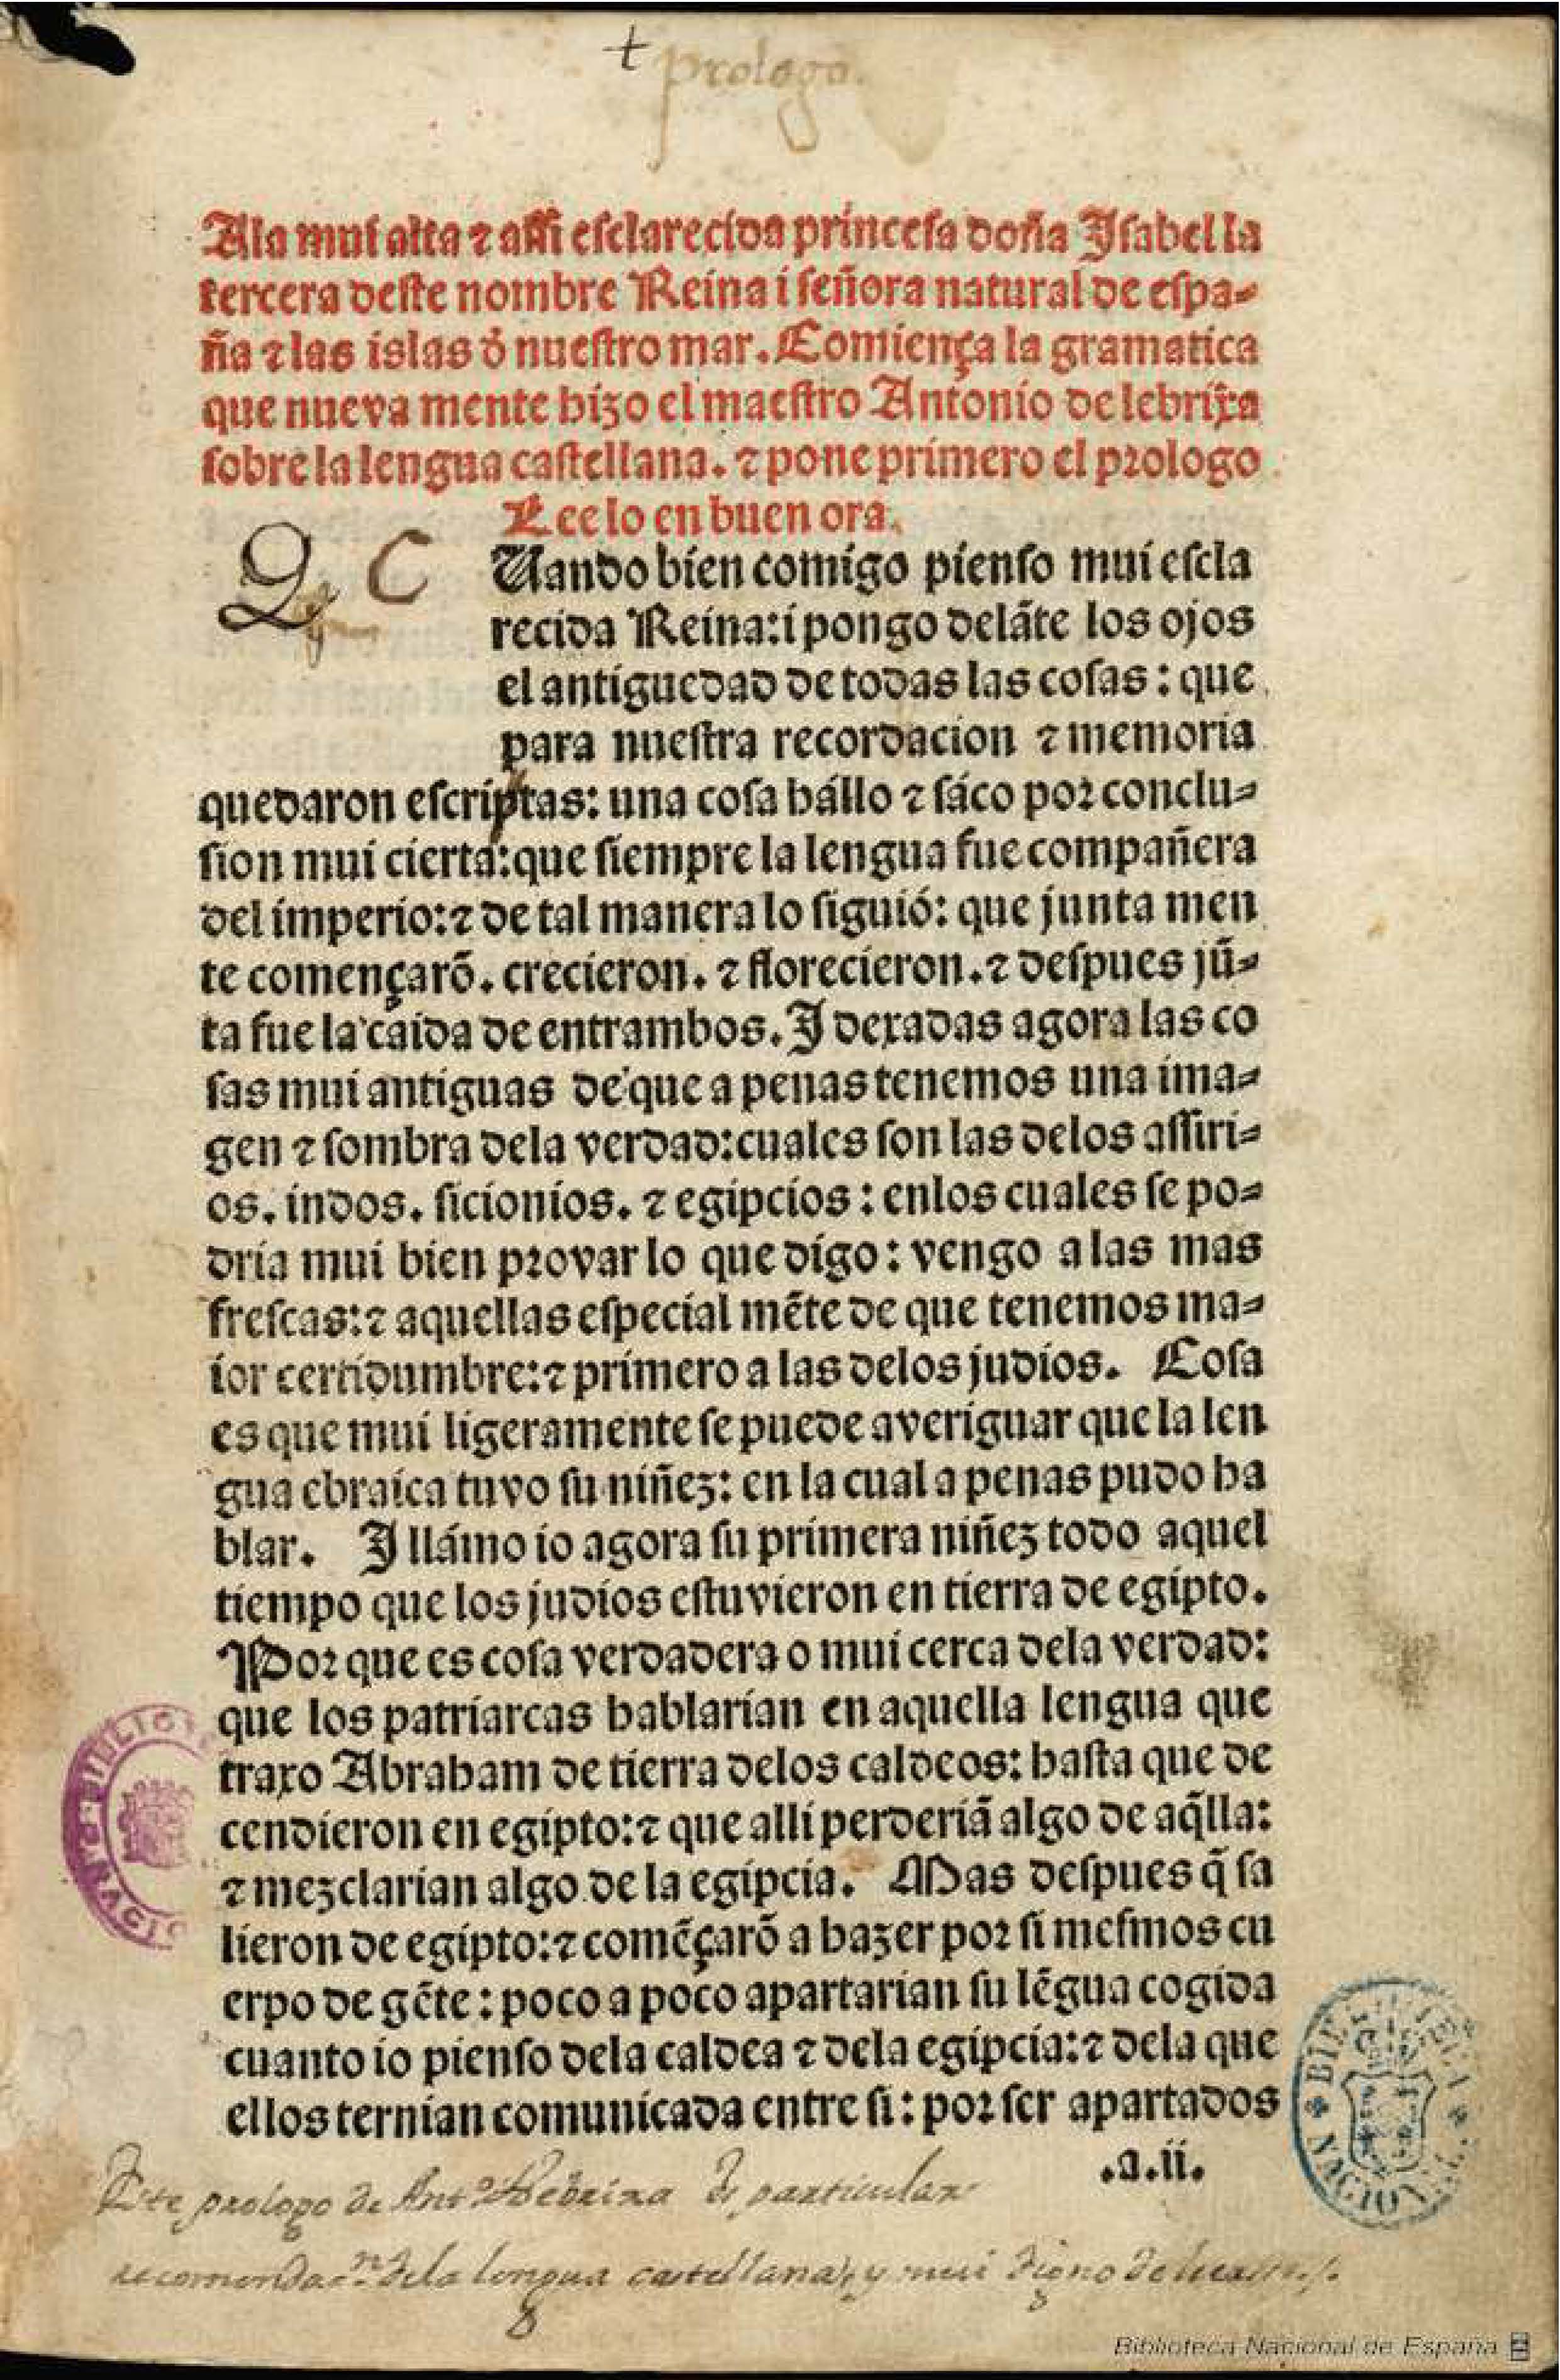 + prologo.
Ala mui alta ⁊ assi esclarecida princesa doña Isabel la
tercera deste nombre Reina i señora natural de espa-
ña ⁊ las islas đ nuestro mar. Comiença la gramatica
que nueva mente hizo el maestro Antonio de lebrixa
sobre la lengua castellana. ⁊ pone primero el prologo
Lee lo en buen ora.
Q C
Uando bien comigo pienso mui escla
recida Reina: i pongo delãte los ojos
el antiguedad de todas las cosas: que
para nuestra recordacion ⁊ memoria
quedaron escriptas: una cosa hállo ⁊ sáco por conclu-
sion mui cierta: que siempre la lengua fue compañera
del imperio: ⁊ de tal manera lo siguió: que junta men
te començarõ. crecieron. ⁊ florecieron. ⁊ despues jũ-
ta fue la caida de entrambos. I dexadas agora las co
sas mui antiguas de que a penas tenemos una ima-
gen ⁊ sombra dela verdad: cuales son las delos assiri-
os. indos. sicionios. ⁊ egipcios: enlos cuales se po-
dria mui bien provar lo que digo: vengo a las mas
frescas: ⁊ aquellas especial mẽte de que tenemos ma-
ior certidumbre: ⁊ primero a las delos judios. Cosa
es que mui ligeramente se puede averiguar que la len
gua ebraica tuvo su niñez: en la cual a penas pudo ha
blar. I llámo io agora su primera niñez todo aquel
tiempo que los judios estuvieron en tierra de egipto.
Por que es cosa verdadera o mui cerca dela verdad:
que los patriarcas hablarian en aquella lengua que
traxo Abraham de tierra delos caldeos: hasta que de
cendieron en egipto: ⁊ que alli perderiã algo de aq̃lla:
⁊ mezclarian algo de la egipcia. Mas despues q̃ sa
lieron de egipto: ⁊ comẽçarõ a hazer por si mesmos cu
erpo de gẽte: poco a poco apartarian su lẽgua cogida
cuanto io pienso dela caldea ⁊ dela egipcia: ⁊ dela que
ellos ternian comunicada entre si: por ser apartados
.a.ii.
Este prologo de Antº Nebrixa es particular
recomendaⁿ. dela lengua castellana, y mui digno de
Biblioteca Nacional de España